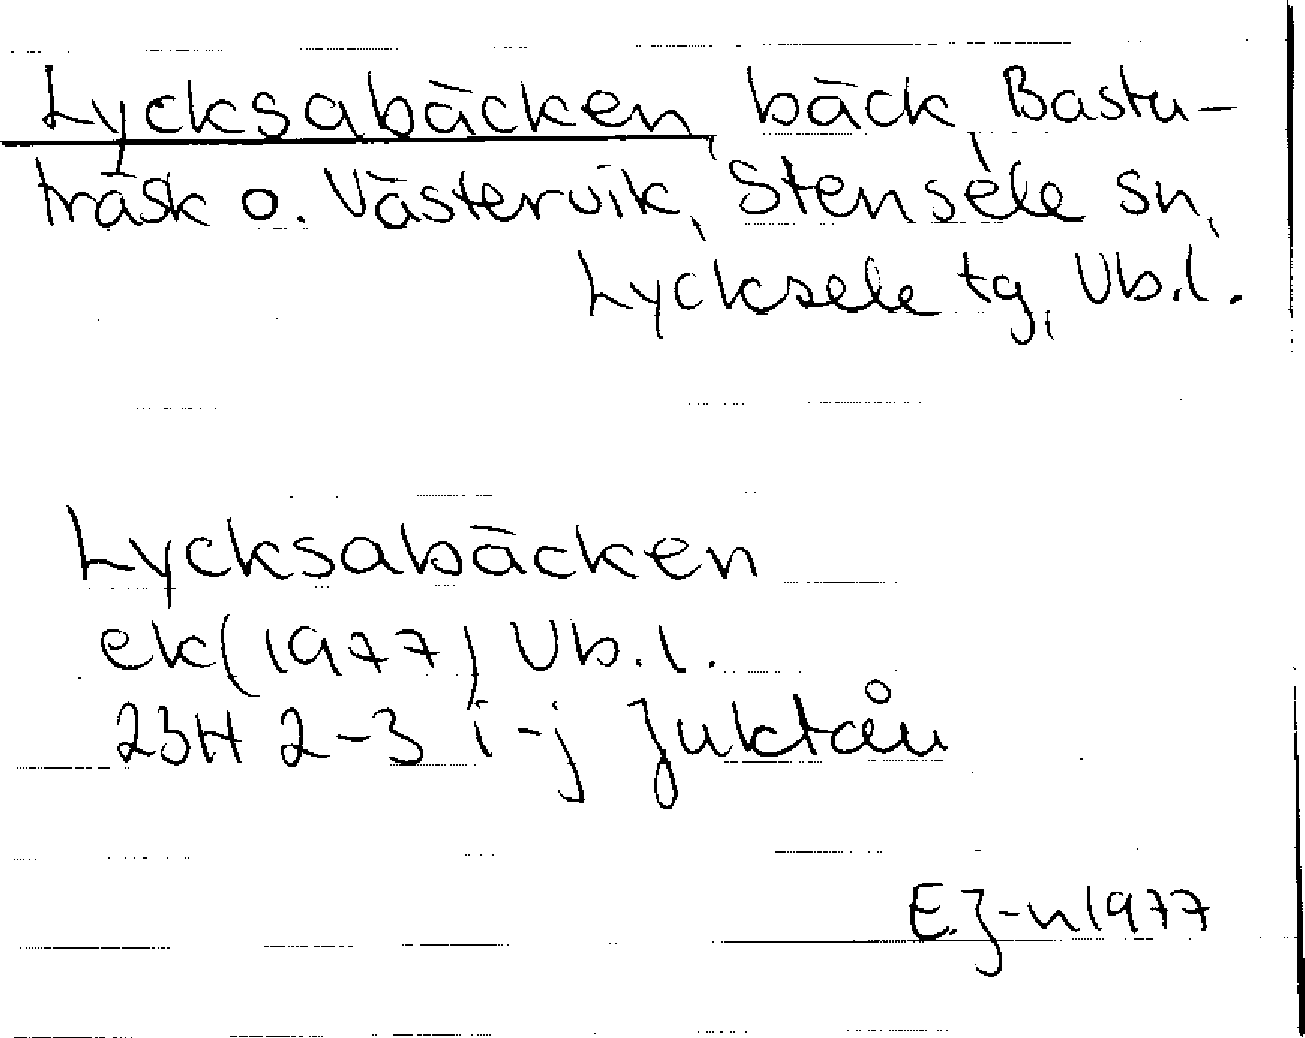 Lycksabäcken, bäck, Bastu-
träsk o. Västervik, Stensele sn,
Lycksele tg, Vb.l.
Lycksabäcken
ek(1977) Vb.l.
23H 2-3 i-j Juktån
E.J-n 1977